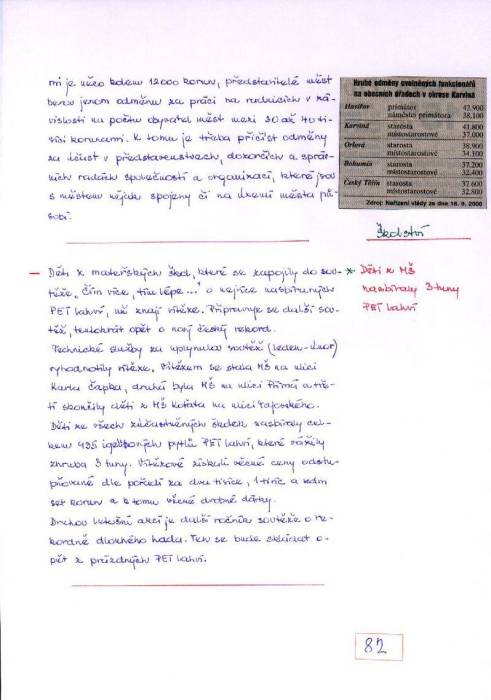 mi je něco kolem 12000 korun, představitelé měst
berou jenom odměnu za práci na radnicích v zá-
vislosti na počtu obyvatel měst mezi 30 až 40 ti-
síci korunami. K tomu je třeba přičíst odměny
za účast v představenstvech, dozorčích a správ-
ních radách společností a organizací, které jsou
s městem nějak spojeny či na území města pů-
sobí.
Hrubé odměny uvolněných funkcionářů
na obecních úřadech v okrese Karviná
Havířov primátor 42.900
náměstci primátora 38.100
Karviná starosta 41.800
místostarostové 37.000
Orlová starosta 38.900
místostarostové 34.100
Bohumín starosta 37.200
místostarostové 32.400
Český Těšín starosta 37.600
místostarostové 32.800
Zdroj: Nařízení vlády ze dne 18. 9. 2000
Školství
— Děti z mateřských škol, které se zapojily do sou-
těže „Čím více, tím lépe..." o nejvíce nasbíraných
PET lahví, už znají vítěze. Připravuje se další sou-
těž, tentokrát opět o nový český rekord.
Technické služby za uplynulou soutěž (leden - únor)
vyhodnotily vítěze. Vítězem se stala MŠ na ulici
Karla Čapka, druhá byla MŠ na ulici Přímá a tře-
tí skončily děti z MŠ Koťata na ulici Tajovského.
Děti ze všech zúčastněných školek nasbíraly cel-
kem 495 igelitových pytlů PET lahví, které vážily
zhruba 3 tuny. Vítězové získali věcné ceny odstu-
pňované dle pořadí za dva tisíce, 1 tisíc a sedm
set korun a k tomu věcné drobné dárky.
Druhou letošní akcí je další ročník soutěže o re-
kordně dlouhého hada. Ten se bude skládat o-
pět z prázdných PET lahví.
* Děti z MŠ
nasbíraly 3 tuny
PET lahví
82